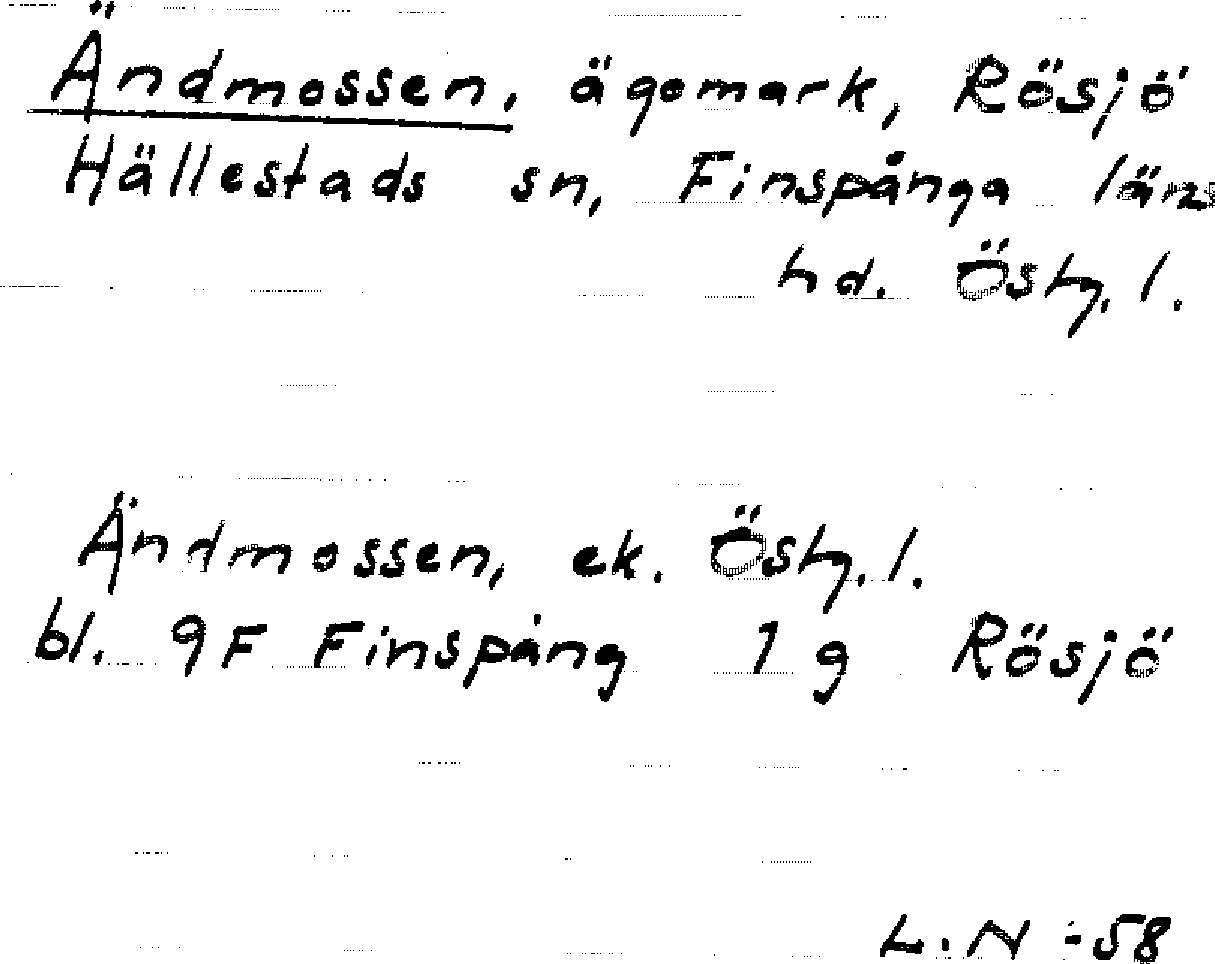 Ändmossen, ägomark, Rösjö
Hällestads sn, Finspånga läns
hd. Östg. l.
Ändmossen, ek. Östg. l.
bl. 9F Finspång 1g Rösjö
L.N -58